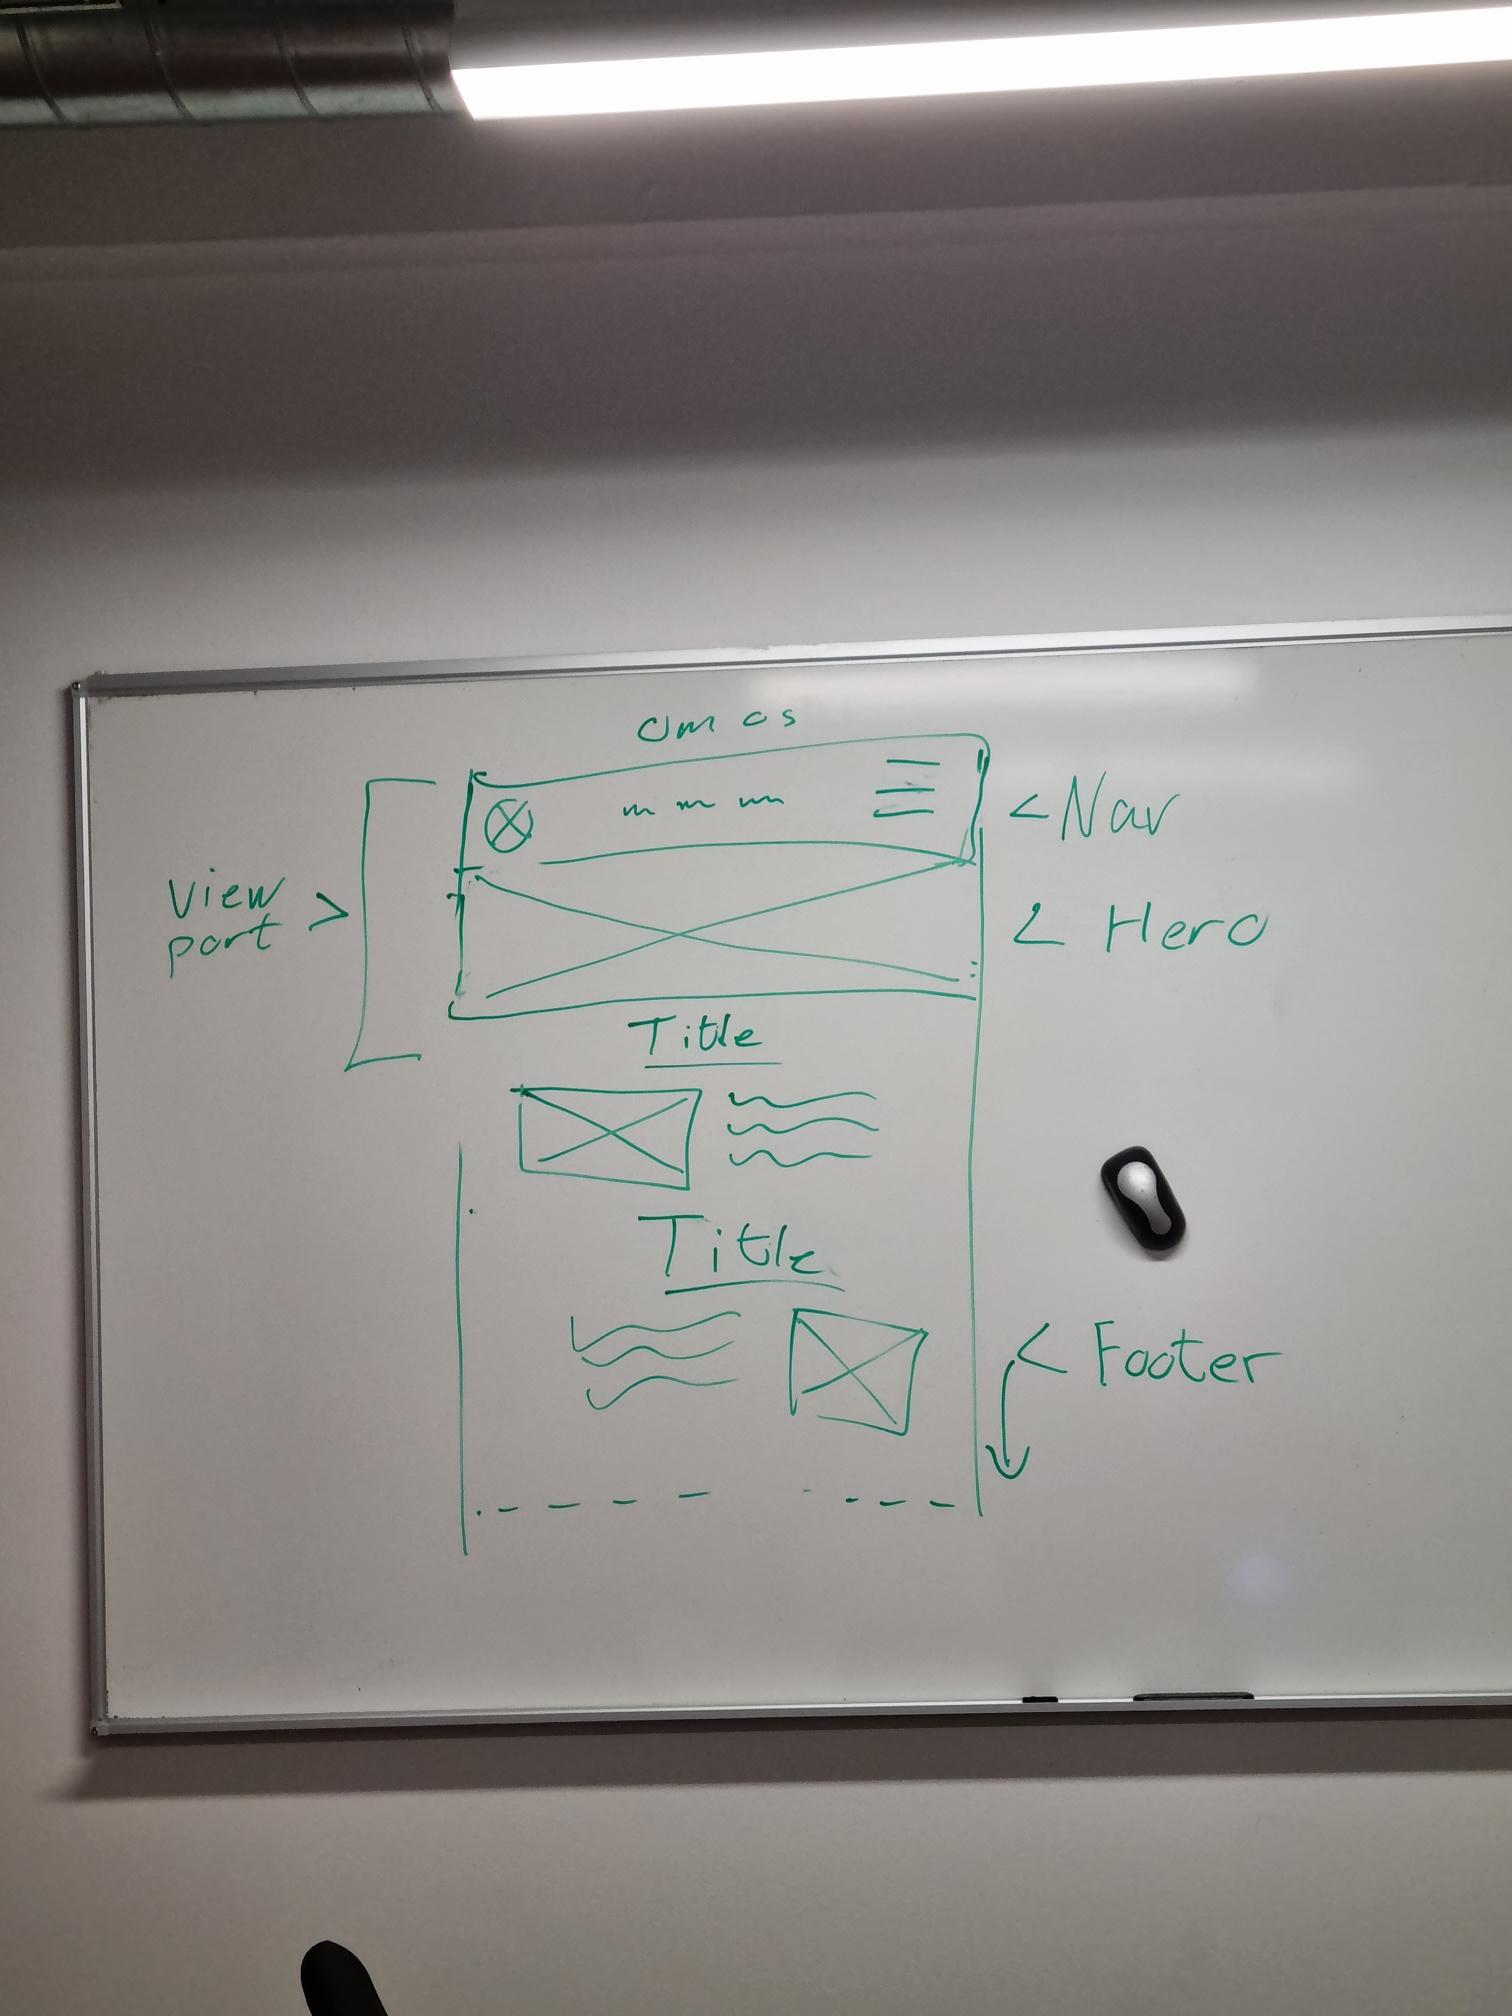 Om os
< Nav
View
port >
< Hero
Title
Title
< Footer